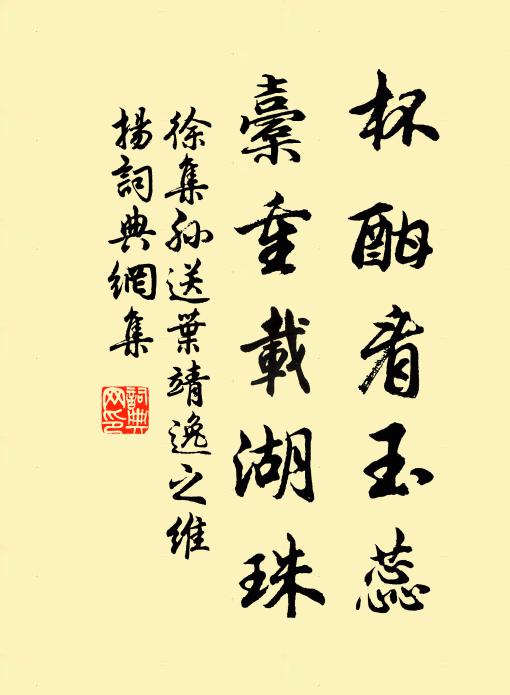 杯酣看玉蕊
橐重載湖珠
徐集孫送葉靖逸之維
揚詞典網集
詞典
网印